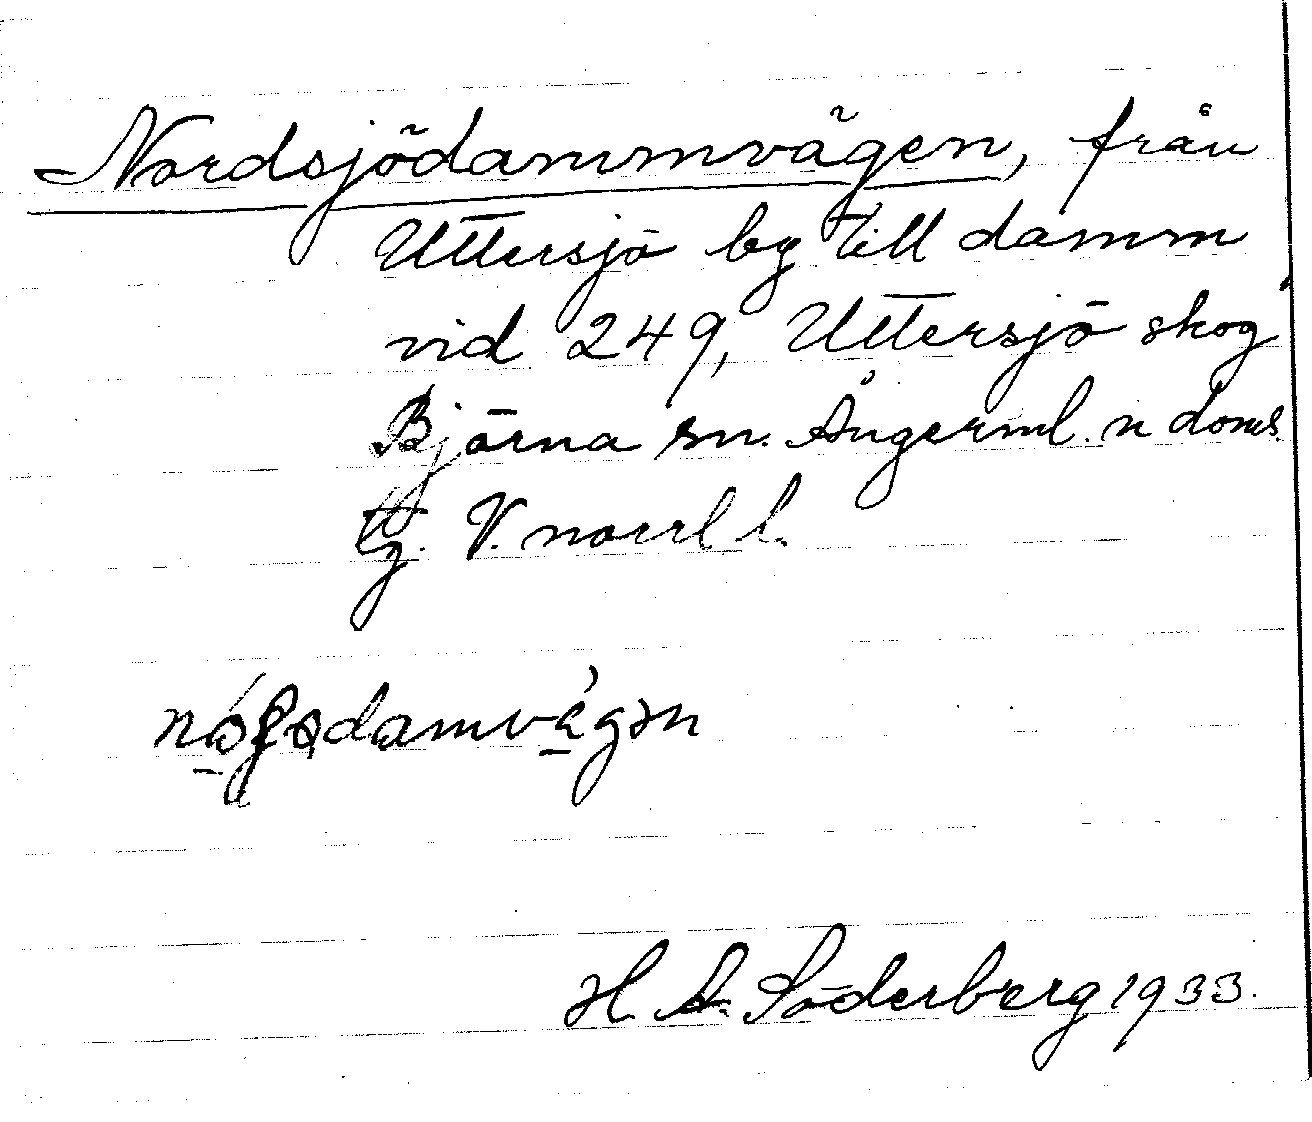 Nordsjödammvägen, från
Uttersjö by till damm
vid 249, Uttersjö skog
Björna sn. Ångerml. n doms.
tg. V. norrl l.
H. A. Söderberg 1933.